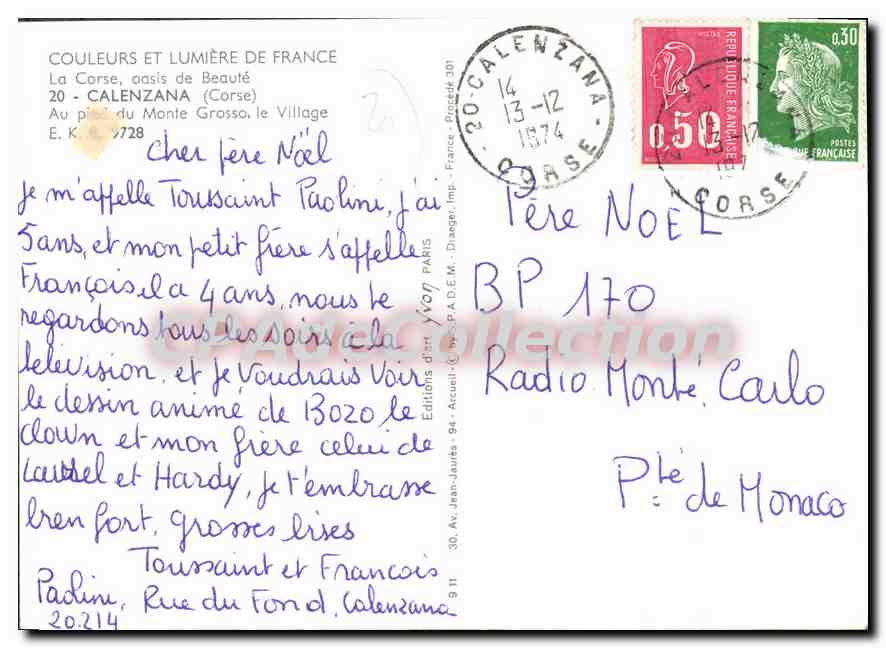 COULEURS ET LUMIÈRE DE FRANCE
La Corse, oasis de Beauté
20 - CALENZANA (Corse)
Au pied du Monte Grosso, le Village
E. K. 9728
Cher père Noël
Je m'appelle Toussaint Paolini, j'ai
5 ans, et mon petit frère s'appelle
François il a 4 ans, nous te
regardons tous les soirs à la
télévision, et je voudrais voir
le dessin animé de Bozo le
clown et mon frère celui de
Laurel et Hardy, je t'embrasse
bien fort, grosses bises
Toussaint et Francois
Paolini, Rue du Fond, Calenzana
20.214
Editions d'art yvon PARIS
30, Av. Jean-Jaurès - 94 - Arcueil - © by S.P.A.D.E.M. - Draeger, Imp. - France - Procédé 301
9 11
20-CALENZANA
14
13-12
1974
CORSE
POSTES
REPUBLIQUE FRANÇAISE
0,50
0,30
POSTES
QUE FRANÇAISE
14
13-12
197
CORSE
Père NOEL
BP 170
Radio Monté. Carlo
Pté de Monaco
CPAdeCollection